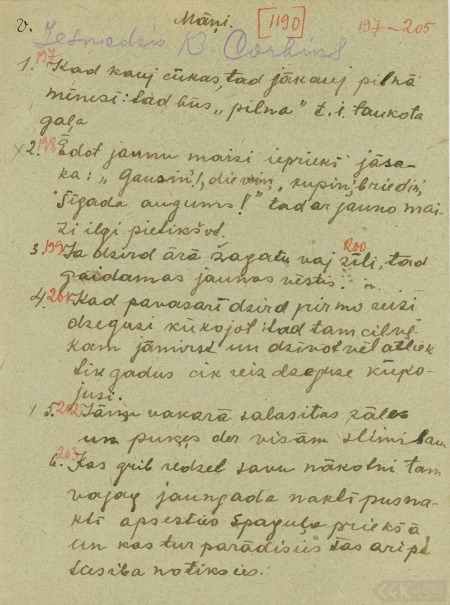 V. Māņi. [1190] 197-205
Iesniedzis B. Corbiks
197
1. Kad kauj cūkas, tad jākauj pilnā
mēnesī: tad būs „pilna" t. i. taukota
gaļa
x 2. 198 Ēdot jaunu maizi iepriekš jāsa-
ka: „Gausin!, dieviņ, kupin, briedin,
šīgada augums!" tad ar jauno mai-
zi ilgi pietikšot.
3. 199 Ja dzird ārā žagatu vaj 200 zīli, tad
gaidamas jaunas vēstis.
4. 201 Kad pavasarī dzird pirmo reizi
dzeguzi kūkojot: tad tam cilvē-
kam jāmirst un dzīvot vēl atliek
tik gadus cik reiz dzeguze kūko-
jusi.
x 5. 202 Jāņu vakarā salasitas zāles
un puķes der visām slimībām
6. 203 Kas grib redzet savu nākotni tam
vajag jaungada naktī pusna-
ktī apsesties spaguļa priekšā
un kas tur parādīsies tas arī pa
tiesiba notiksies.